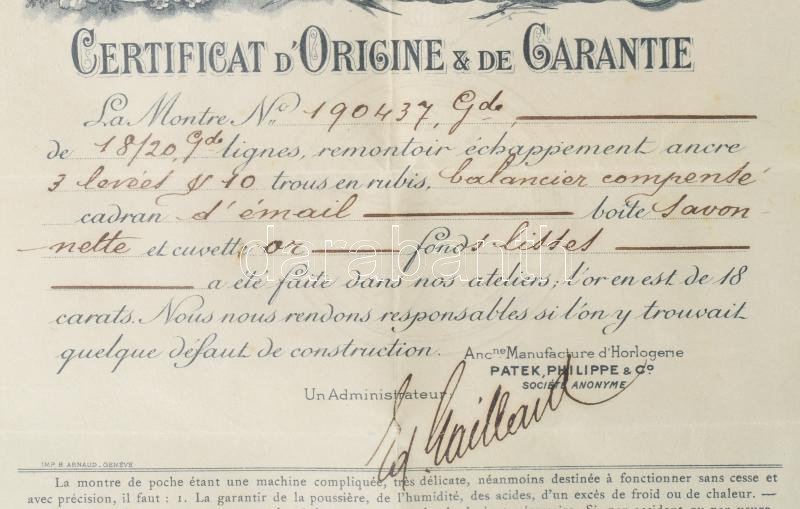 CERTIFICAT D'ORIGINE & DE GARANTIE
La Montre No 190437, Gde,
de 18/20, Gde lignes, remontoir échappement ancre
3 levées & 10 trous en rubis, balancier compensé
cadran d'émail boîte savon-
nette et cuvette or fonds lisses
a été faite dans nos ateliers; l'or en est de 18
carats. Nous nous rendons responsables si l'on y trouvait
quelque défaut de construction.
Anc.ne Manufacture d'Horlogerie
PATEK, PHILIPPE & Co.
SOCIÉTÉ ANONYME
Un Administrateur
Ed. Gaillard
darabanth
IMP. B. ARNAUD_GENÈVE
La montre de poche étant une machine compliquée, très délicate, néanmoins destinée à fonctionner sans cesse et
avec précision, il faut : 1. La garantir de la poussière, de l'humidité, des acides, d'un excès de froid ou de chaleur. —